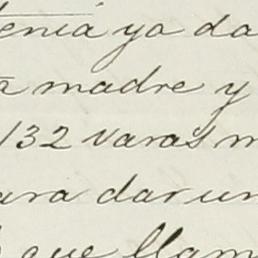 tenía ya da
a madre y
132 varas m
ara dar un
que llam